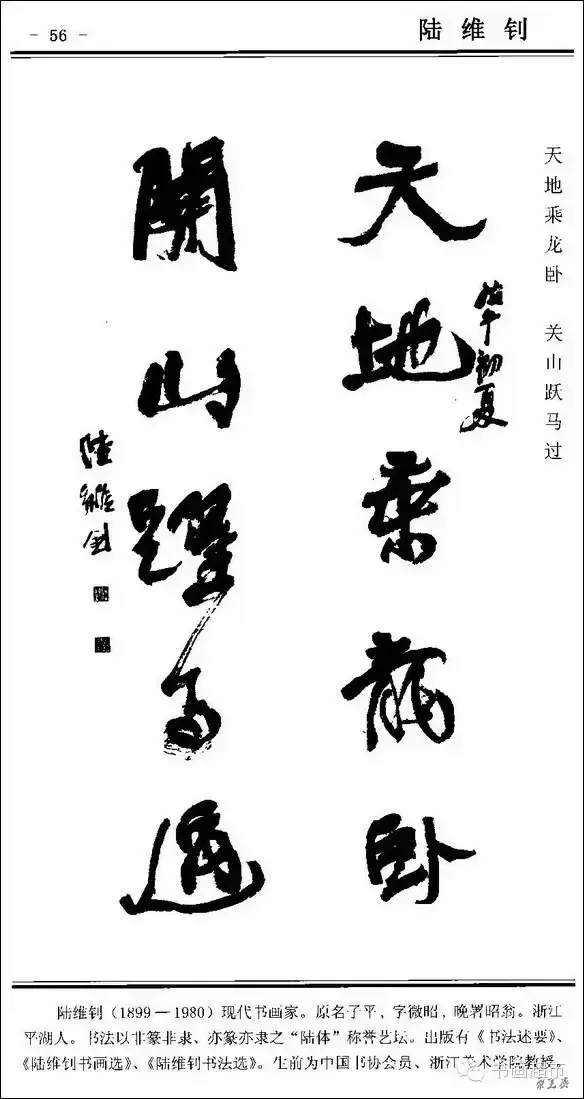 - 56 -
陆维钊
天地乘龙卧 关山跃马过
天地乘龍卧
初夏
關山躍馬過
陸維釗
陆维钊（1899－1980）现代书画家。原名子平，字微昭，晚署昭翁。浙江
平湖人。书法以非篆非隶、亦篆亦隶之“陆体”称誉艺坛。出版有《书法述要》、
《陆维钊书画选》、《陆维钊书法选》。生前为中国书协会员、浙江美术学院教授。
书画超市